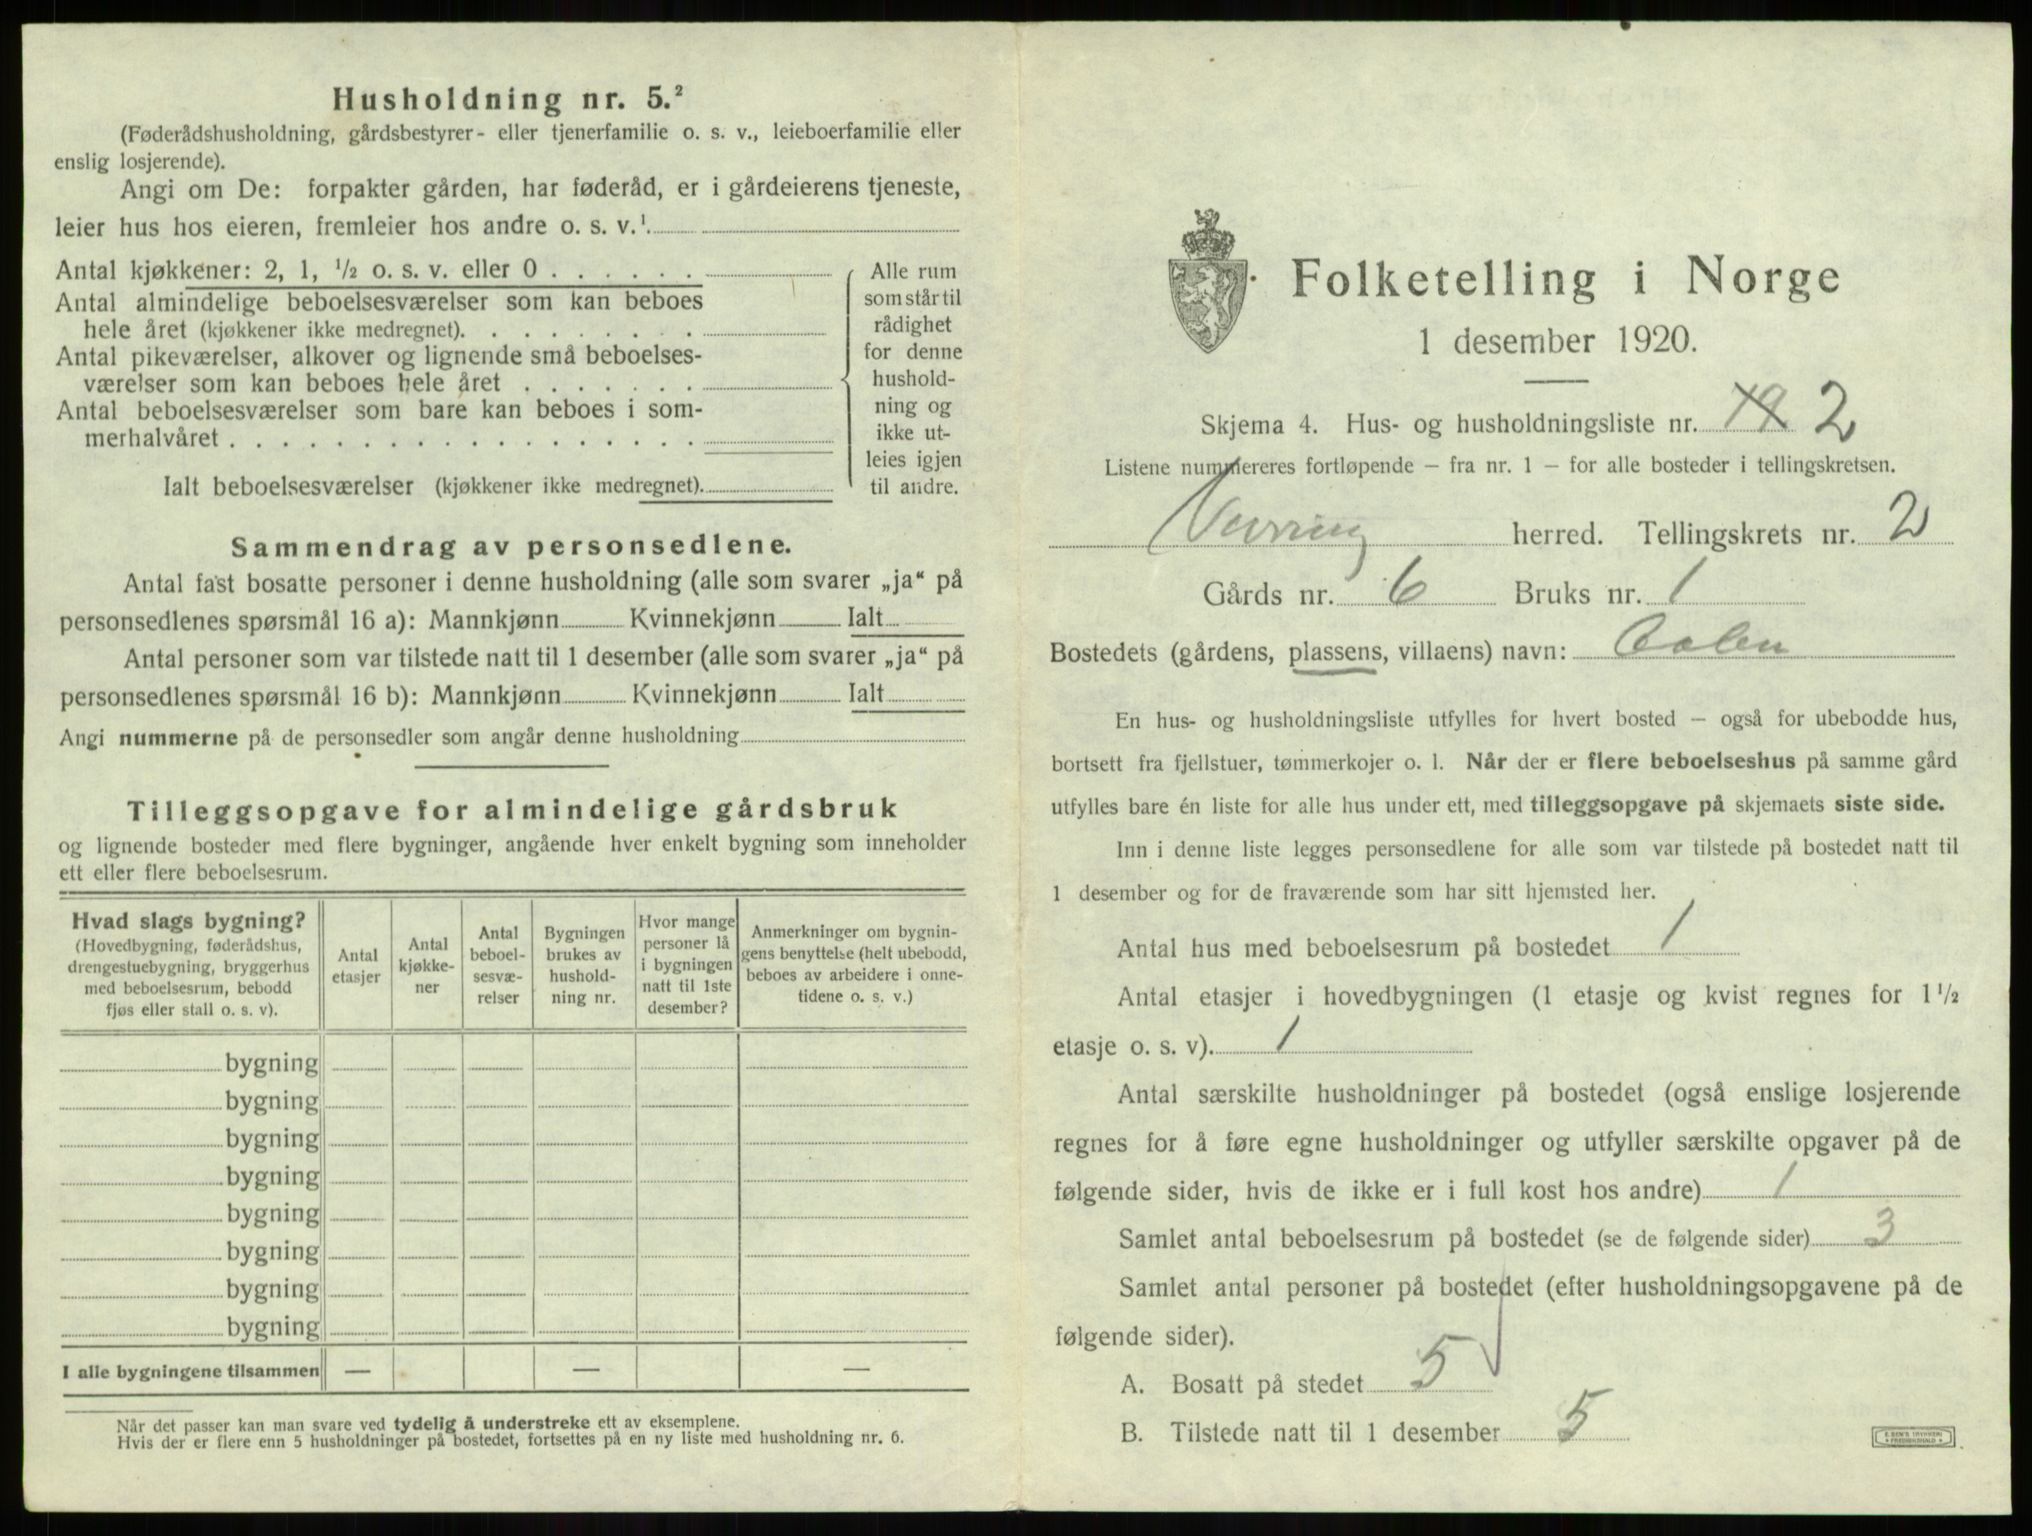 Husholdning nr. 5.²
(Føderådshusholdning, gårdsbestyrer- eller tjenerfamilie o. s. v., leieboerfamilie eller
enslig losjerende).
Angi om De: forpakter gården, har føderåd, er i gårdeierens tjeneste,
leier hus hos eieren, fremleier hos andre o. s. v.¹
Antal kjøkkener: 2, 1, ½ o. s. v. eller 0 . . . . . .
Antal almindelige beboelsesværelser som kan beboes
hele året (kjøkkener ikke medregnet). . . . . . . . .
Antal pikeværelser, alkover og lignende små beboelses-
værelser som kan beboes hele året . . . . . . .
Antal beboelsesværelser som bare kan beboes i som-
merhalvåret . . . . . . . . . . . . . . . . . .
Ialt beboelsesværelser (kjøkkener ikke medregnet).
Alle rum
som står til
rådighet
for denne
hushold-
ning og
ikke ut-
leies igjen
til andre.
Sammendrag av personsedlene.
Antal fast bosatte personer i denne husholdning (alle som svarer „ja“ på
personsedlenes spørsmål 16 a): Mannkjønn Kvinnekjønn Ialt
Antal personer som var tilstede natt til 1 desember (alle som svarer „ja“ på
personsedlenes spørsmål 16 b): Mannkjønn Kvinnekjønn Ialt
Angi nummerne på de personsedler som angår denne husholdning
Tilleggsopgave for almindelige gårdsbruk
og lignende bosteder med flere bygninger, angående hver enkelt bygning som inneholder
ett eller flere beboelsesrum.
Hvad slags bygning?
(Hovedbygning, føderådshus,
drengestuebygning, bryggerhus
med beboelsesrum, bebodd
fjøs eller stall o. s. v).
Antal
etasjer
Antal
kjøkke-
ner
Antal
beboel-
sesvæ-
relser
Bygningen
brukes av
hushold-
ning nr.
Hvor mange
personer lå
i bygningen
natt til 1ste
desember?
Anmerkninger om bygnin-
gens benyttelse (helt ubebodd,
beboes av arbeidere i onne-
tidene o. s. v.)
bygning
bygning
bygning
bygning
bygning
bygning
bygning
bygning
I alle bygningene tilsammen — — —
Når det passer kan man svare ved tydelig å understreke ett av eksemplene.
Hvis der er flere enn 5 husholdninger på bostedet, fortsettes på en ny liste med husholdning nr. 6.
Folketelling i Norge
1 desember 1920.
Skjema 4. Hus- og husholdningsliste nr. 2
Listene nummereres fortløpende – fra nr. 1 – for alle bosteder i tellingskretsen.
Vevring herred. Tellingskrets nr. 2
Gårds nr. 6 Bruks nr. 1
Bostedets (gårdens, plassens, villaens) navn:
En hus- og husholdningsliste utfylles for hvert bosted – også for ubebodde hus,
bortsett fra fjellstuer, tømmerkojer o. l. Når der er flere beboelseshus på samme gård
utfylles bare én liste for alle hus under ett, med tilleggsopgave på skjemaets siste side.
Inn i denne liste legges personsedlene for alle som var tilstede på bostedet natt til
1 desember og for de fraværende som har sitt hjemsted her.
Antal hus med beboelsesrum på bostedet 1
Antal etasjer i hovedbygningen (1 etasje og kvist regnes for 1½
etasje o. s. v). 1
Antal særskilte husholdninger på bostedet (også enslige losjerende
regnes for å føre egne husholdninger og utfyller særskilte opgaver på de
følgende sider, hvis de ikke er i full kost hos andre) 1
Samlet antal beboelsesrum på bostedet (se de følgende sider) 3
Samlet antal personer på bostedet (efter husholdningsopgavene på de
følgende sider).
A. Bosatt på stedet 5
B. Tilstede natt til 1 desember 5